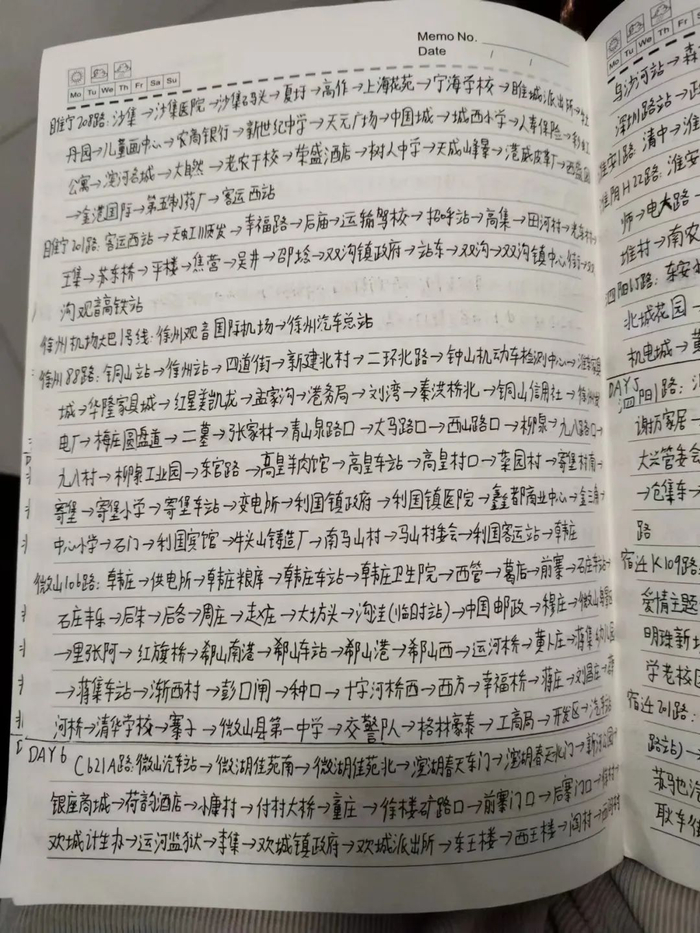 Memo No.
Date / /
Mo Tu We Th Fr Sa Su
睢宁208路: 沙集→沙集医院→沙集码头→夏圩→高作→上海花苑→宁海学校→睢城派出所→
丹园→儿童画中心→农商银行→新世纪中学→天元广场→中国城→城西小学→人寿保险→
公寓→滨河名城→大自然→老农干校→荣盛酒店→树人中学→天成山峰景→港威皮革厂→
→金港国际→第五制药厂→客运西站
睢宁201路: 客运西站→天虹川顺发→幸福路→后庙→运输驾校→招呼站→高集→田河村→
王集→苏东桥→平楼→焦营→吴井→邵埝→双沟镇政府→站东→双沟→双沟镇中心街→双
沟观音高铁站
徐州机场大巴1号线: 徐州观音国际机场→徐州汽车总站
徐州88路: 铜山站→徐州站→四道街→新建北村→二环北路→钟山机动车检测中心→
城→华隆家具城→红星美凯龙→孟家沟→港务局→刘湾→秦洪桥北→铜山信用社→
电厂→梅庄圆盘道→二墓→张家林→青山泉路口→大马路口→西山路口→柳泉→九八路口→
九八村→柳泉工业园→东官路→高皇羊肉馆→高皇车站→高皇村口→菜园村→寄堡村南→
寄堡→寄堡小学→寄堡车站→变电所→利国镇政府→利国镇医院→鑫都商业中心→
中心小学→石门→利国宾馆→牛头山铸造厂→南马山村→马山村委会→利国客运站→韩庄
微山106路: 韩庄→供电所→韩庄粮库→韩庄车站→韩庄卫生院→西管→葛店→前寨→石庄
石庄丰乐→后朱→后各→周庄→赵庄→大坊头→沟洼(临时站)→中国邮政→穆庄→
→里张阿→红旗桥→郗山南港→郗山车站→郗山港→郗山西→运河桥→黄卜庄→蒋集幼儿园
→蒋集车站→渐西村→彭口闸→种口→十字河桥西→西方→幸福桥→蒋庄→刘昌庄→
河桥→清华学校→寨子→微山县第一中学→交警队→格林豪泰→工商局→开发区→
DAY6
C621A路: 微山汽车站→微湖佳苑南→微湖佳苑北→澐湖春天东门→澐湖春天北门→
银座商城→荷韵酒店→小康村→付村大桥→董庄→徐楼矿路口→前寨门口→后寨门口→
欢城计生办→运河监狱→李集→欢城镇政府→欢城派出所→东王楼→西王楼→闫村→
Mo Tu We Th Fr
乌沙河站→森
深圳路站→
淮安1路: 清中→淮
淮阴H22路: 淮安
师→电大路
堆村→南农
泗阳15路: 东安
北城花园→
机电城→黄
DAY5
泗阳1路:
谢坊家居→
大兴管委会
→仓集车→
路
宿迁K109路:
爱情主题
明珠新
学老校区
宿迁201路:
路站)→
苏马也
耿车